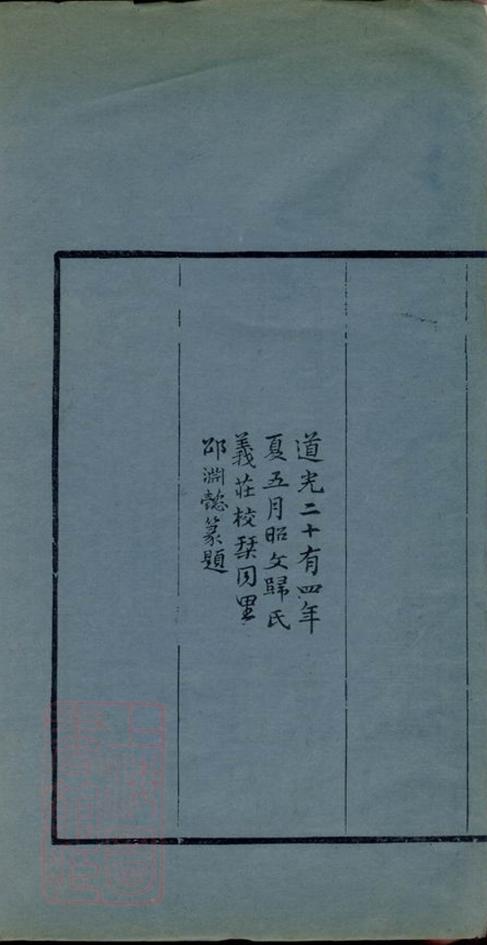 道光二十有四年
夏五月昭文歸氏
義莊校栞同里
邵淵懿篆題